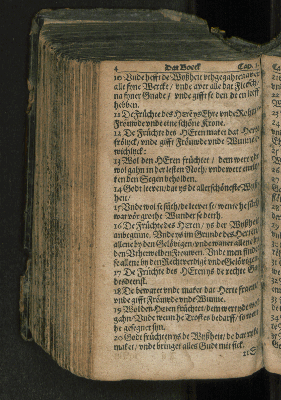 4 Dat Boeck Cap. 1.
10 Vnde hefft de Wyßheit vthgegaten auer
alle syne Wercke / vnde auer alle dat Flesch /
na syner Gnade / vnde gifft se den de en leeff
hebben.
11 De Früchte des HEREN ys Ehre vnde
Fröuwde vnde eine schöne Krone.
12 De Früchte des HEren maket dat Herte
frölick / vnde gifft Fröuwde vnde Wunne
13 Wol den HEren früchtet / dem wert ydt
wol gahn in der lesten Nodt / vnde wert
den Segen beholden.
14 Godt leeuen / dat ys de allerschöneste Wyß
heit /
15 Vnde wol se süth / de leeuet se / wente he süth
wat vör grothe Wunder se deith.
16 De Früchte des Heren / ys der Wyßheit
anbeginn / Vnde ys im Grunde des Herten
allene by den Gelöuigen / vnde wanet allene by
den Vtherwelden Frouwen / Vnde men findet
se allene by den Rechtuerdigen vnde Gelöuigen.
17 De Früchte des HEren ys de rechte
18 De bewaret vnde maket dat Herte fram /
vnde gifft Fröuwde vnde Wunne.
19 Wol den Heren früchtet / dem wert ydt wol
gahn / Vnde wenn he Trostes bedarff / so wert
he gesegnet syn.
20 Godt früchten ys de Wyßheit / de dar ryke
maket / vnde bringet alles Gude mit sick.